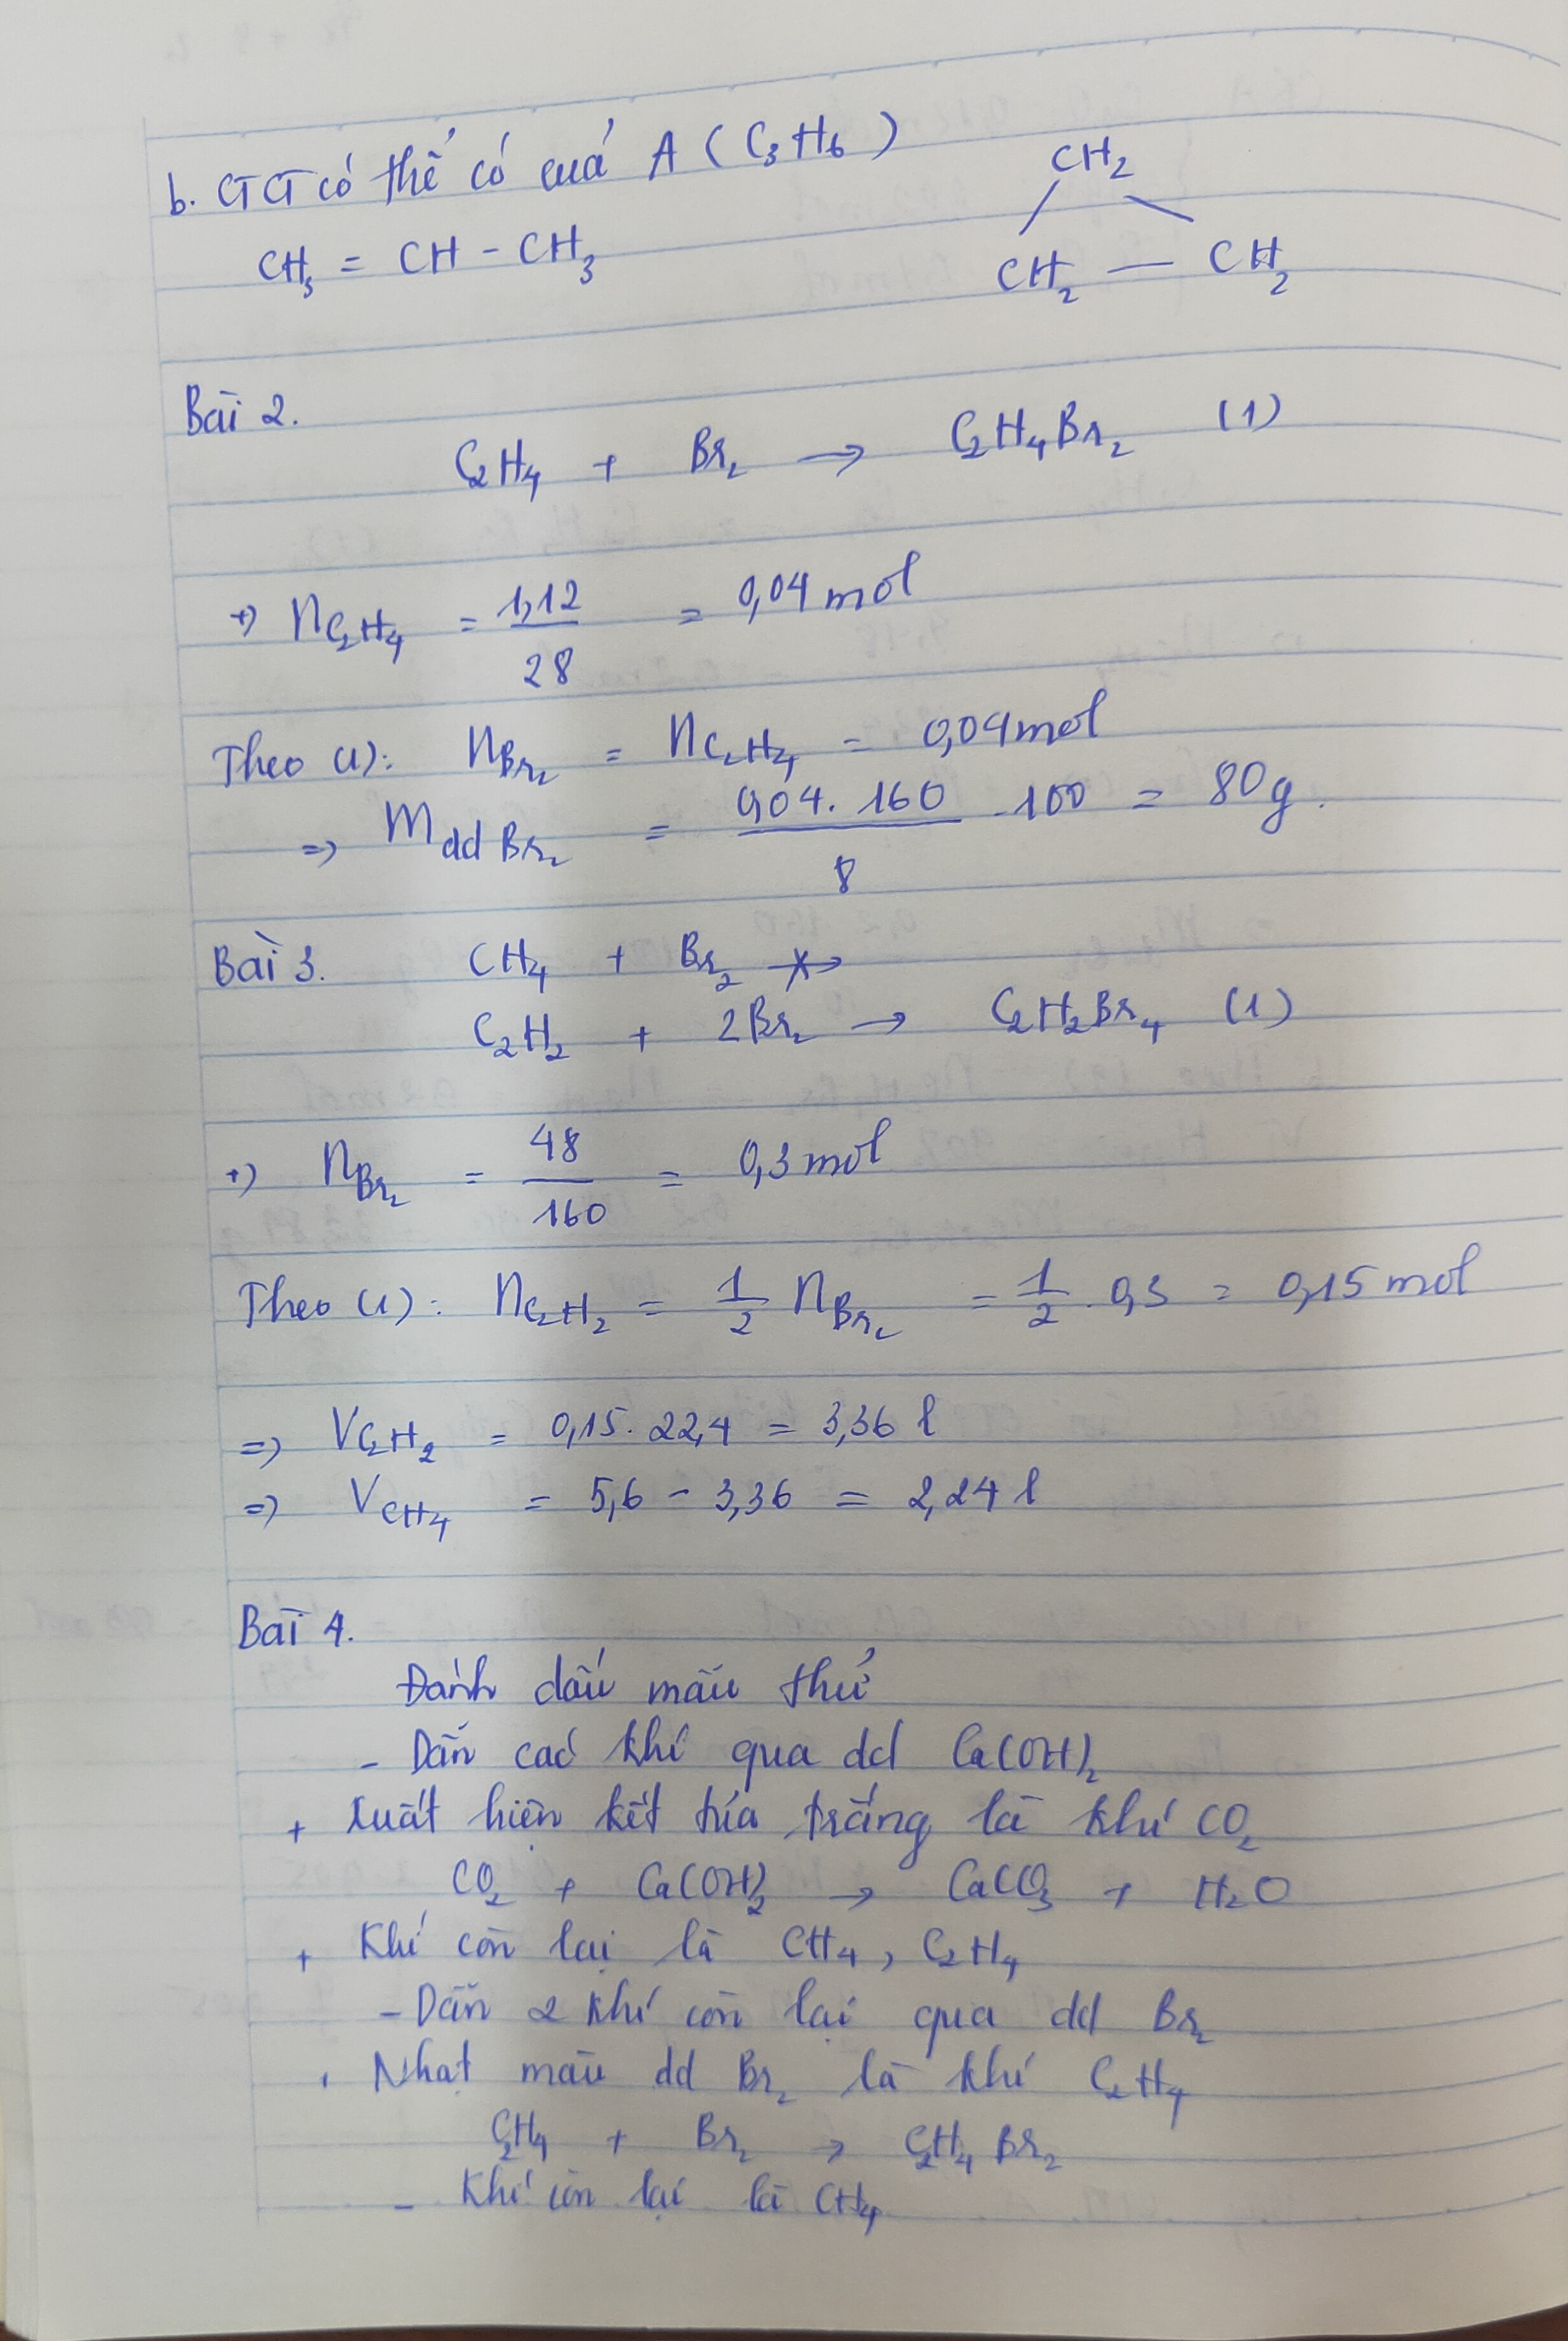 b. CTCT có thể có của A ( C₃H₆ )
CH₂
CH₃ = CH - CH₃
CH₂ — CH₂
Bài 2.
C₂H₄ + Br₂ → C₂H₄Br₂ (1)
+) nC₂H₄ = 1,12 / 28 = 0,04 mol
Theo (1): nBr₂ = nC₂H₄ = 0,04 mol
=> mdd Br₂ = 0,04. 160 / 8 . 100 = 80g.
Bài 3. CH₄ + Br₂ ↛
C₂H₂ + 2Br₂ → C₂H₂Br₄ (1)
+) nBr₂ = 48 / 160 = 0,3 mol
Theo (1): nC₂H₂ = 1/2 nBr₂ = 1/2 . 0,3 = 0,15 mol
=> VC₂H₂ = 0,15. 22,4 = 3,36 l
=> VCH₄ = 5,6 - 3,36 = 2,24 l
Bài 4.
Đánh dấu mẫu thử
- Dẫn các khí qua dd Ca(OH)₂
+ Xuất hiện kết tủa trắng là khí CO₂
CO₂ + Ca(OH)₂ → CaCO₃ + H₂O
+ Khí còn lại là CH₄, C₂H₄
- Dẫn 2 khí còn lại qua dd Br₂
+ Nhạt màu dd Br₂ là khí C₂H₄
C₂H₄ + Br₂ → C₂H₄Br₂
- Khí còn lại là CH₄